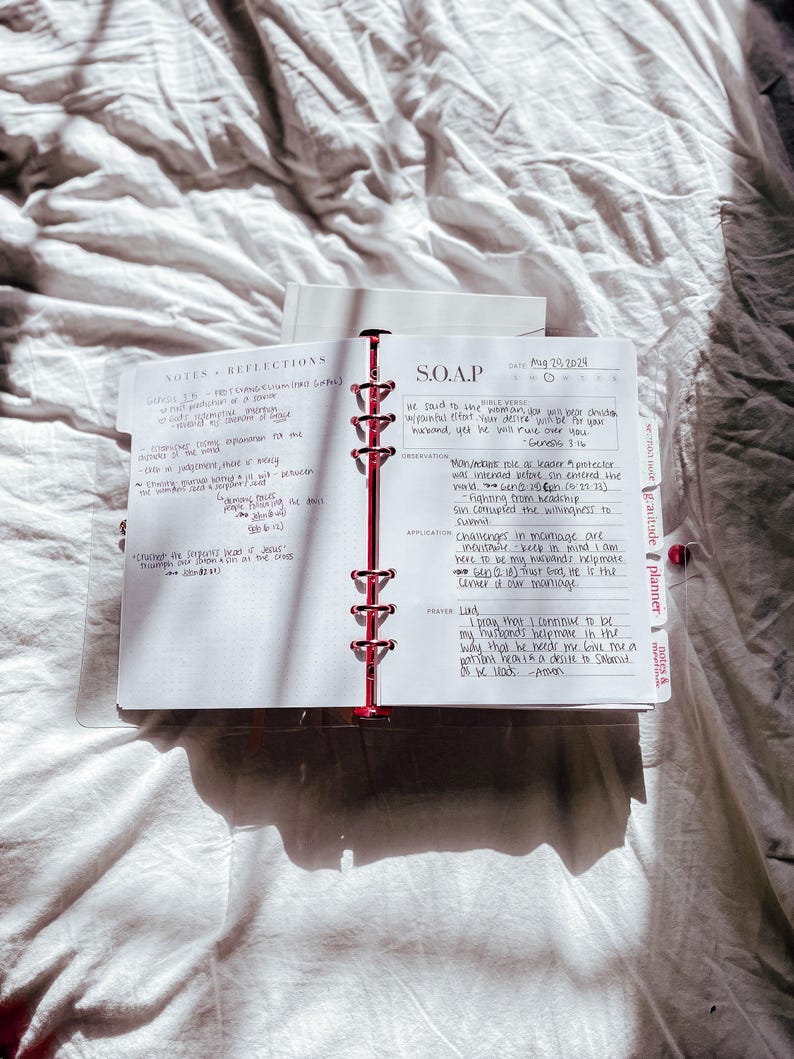 NOTES + REFLECTIONS
Genesis 3:15 - PROTEVANGELIUM (first Gospel)
first prediction of a savior
God's redemptive intention
- revealed his covenant of Grace
- establishes cosmic explanation for the
disorder of the world
- even in judgement, there is mercy
~ Enmity: mutual hatred & ill will - between
the womans seed & serpents seed
demonic forces
people following the devil
John(8:44)
Eph(6:12)
"Crushed" the serpent's head is Jesus'
triumph over satan & sin at the cross
John(12:31)
S.O.A.P
DATE: Aug 20, 2024
S M T W T F S
BIBLE VERSE:
He said to the woman, you will bear children
w/painful effort. Your desire will be for your
husband, yet he will rule over you.
- Genesis 3:16
OBSERVATION:
Man/Adam's role as leader & protector
was intended before sin entered the
world. Gen(2:24) Eph (5:22-23)
- Fighting from headship
sin corrupted the willingness to
submit.
APPLICATION:
Challenges in marriage are
inevitable - keep in mind I am
here to be my husbands helpmate
Gen(2:18) Trust God, He is the
center of our marriage.
PRAYER:
Lord,
I pray that I continue to be
my husbands helpmate in the
way that he needs me. Give me a
patient heart & a desire to submit
as he leads. -Amen
sermon note
gratitude
planner
notes &
meetings